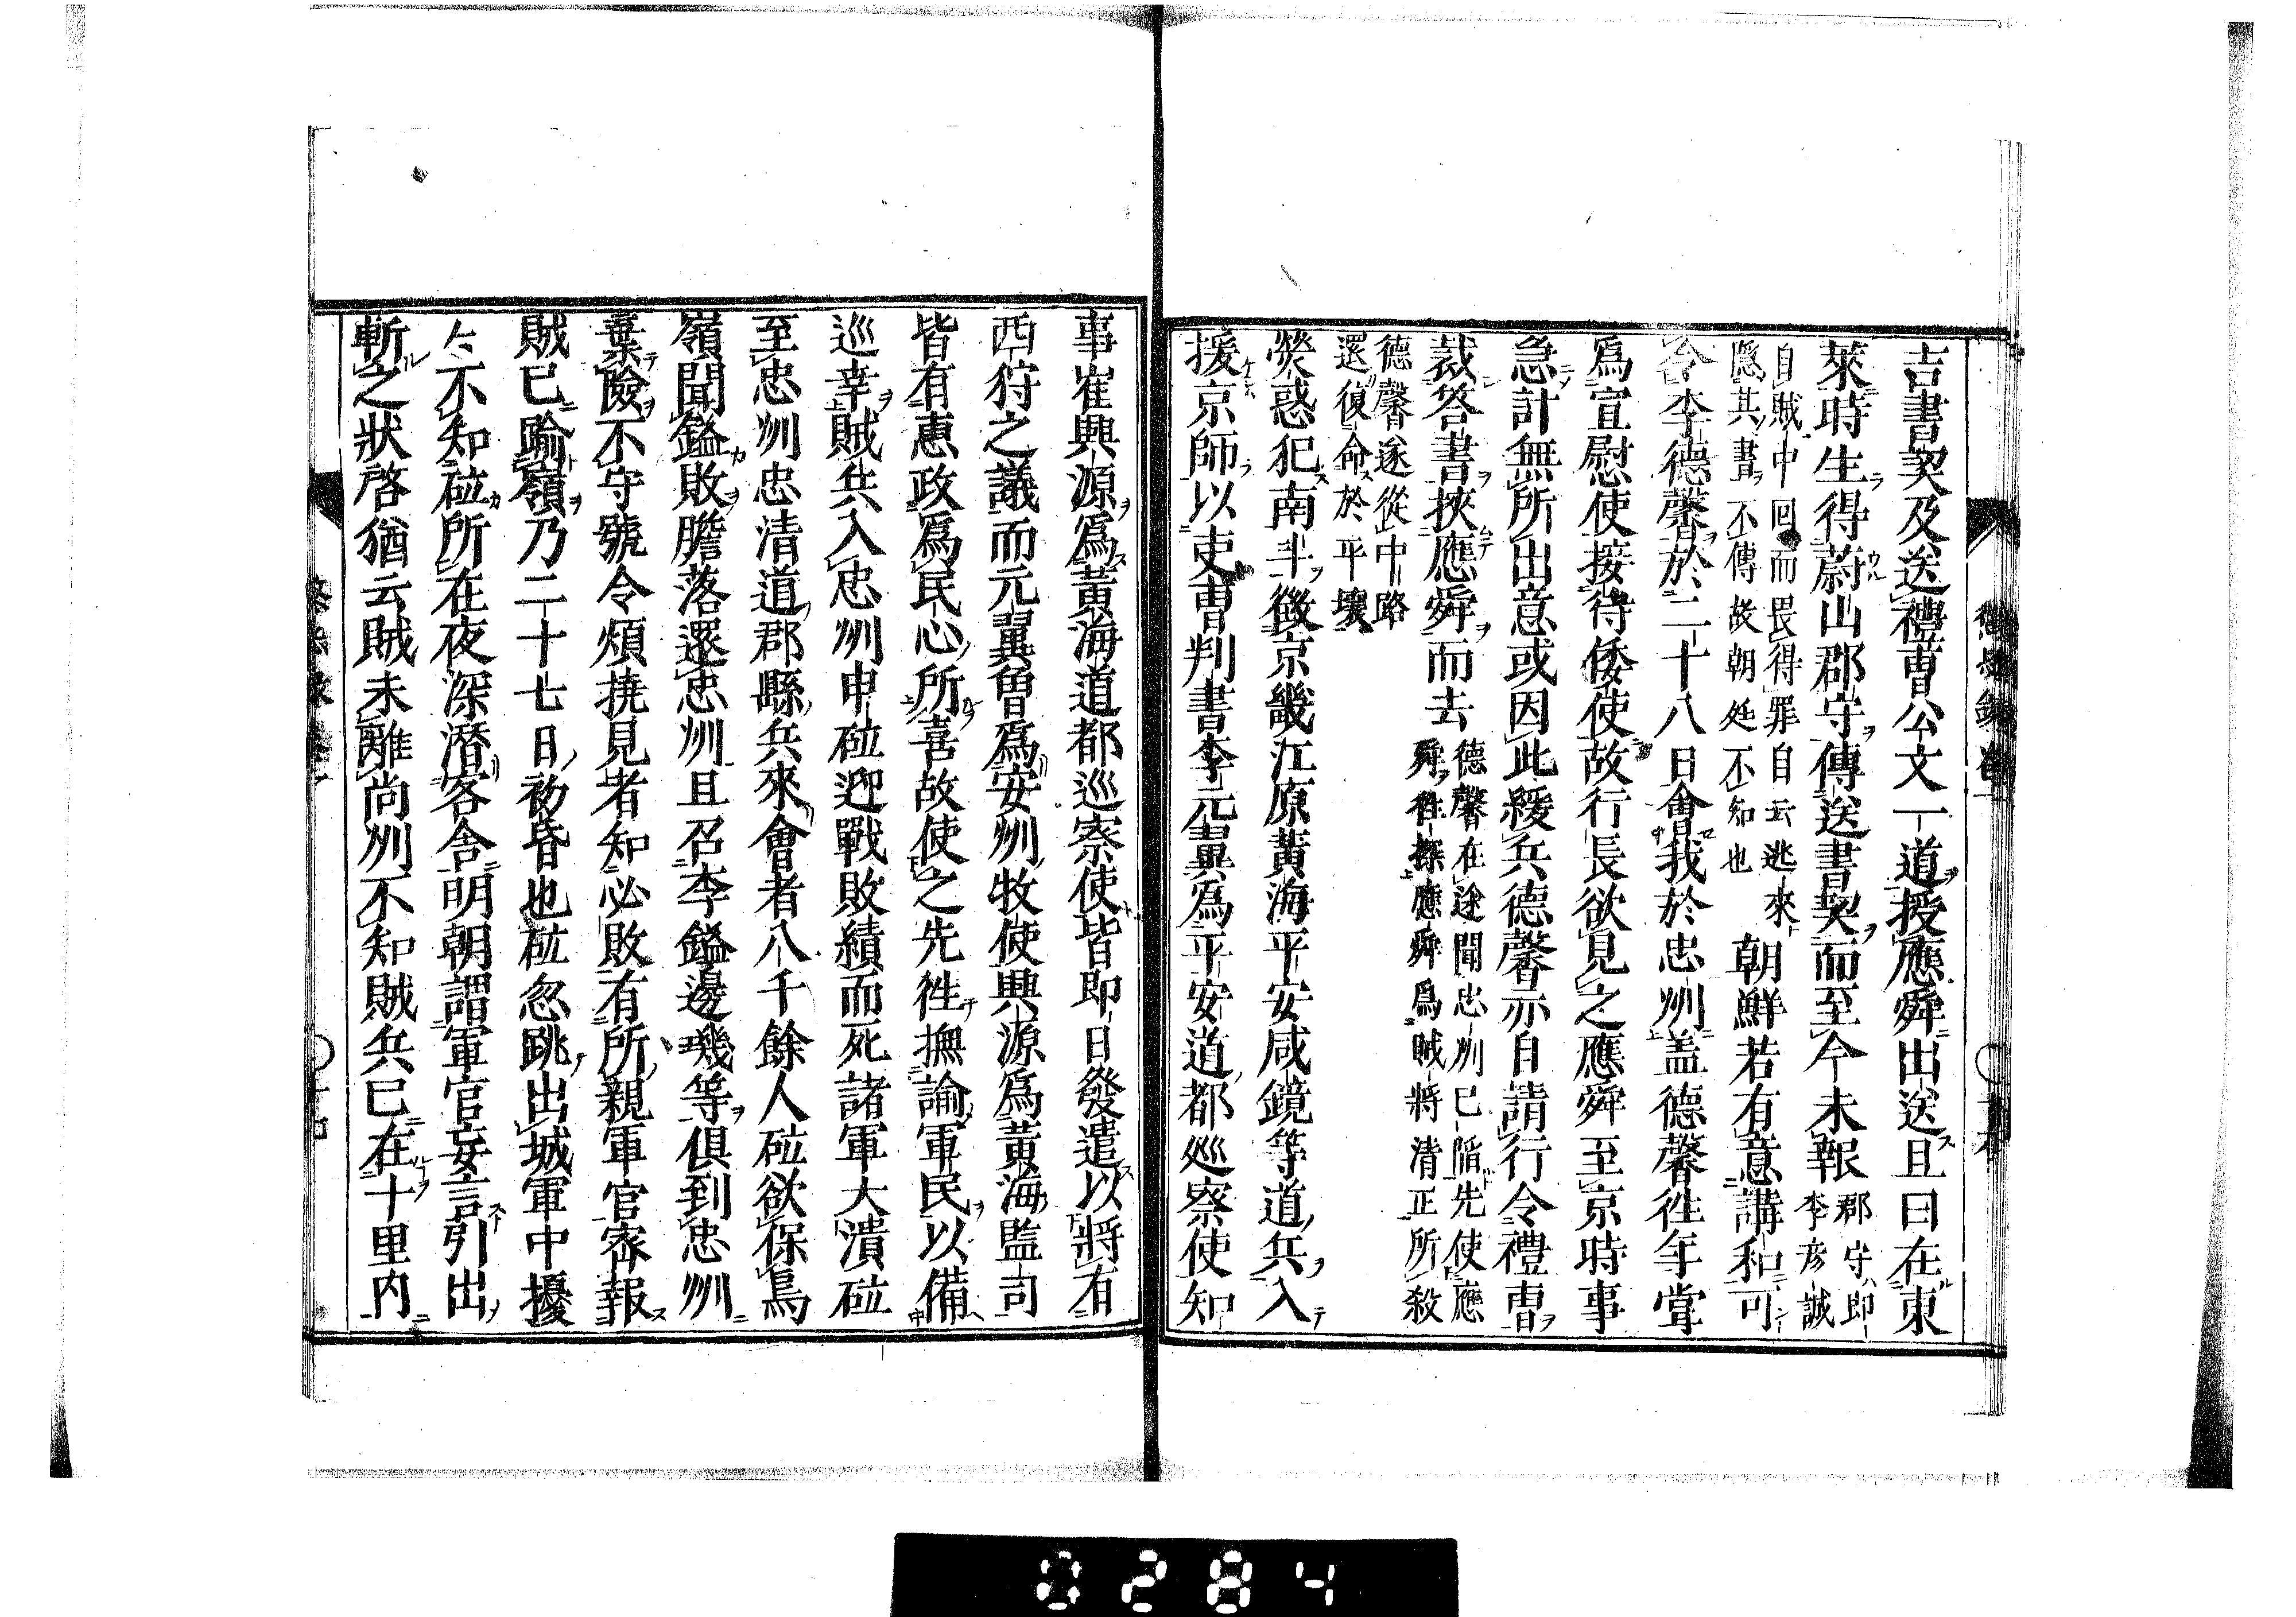 吉書契及送禮曹公文一道授應舜出送且曰在東
萊時生得蔚山郡守傳送書契而至今未報郡守即李彦誠
自賊中回而畏得罪自云逃來隱其書不傳故朝廷不知也朝鮮若有意講和可
令李德馨於二十八日會我於忠州盖德馨徃年甞
爲宣慰使接待倭使故行長欲見之應舜至京時事
急計無所出意或因此緩兵德馨亦自請行令禮曹
裁答書挾應舜而去德馨在途聞忠州已陷先使應舜徃探應舜爲賊將清正所殺
德馨遂從中路還復命於平壤
熒惑犯南斗徵京畿江原黃海平安咸鏡等道兵入
援京師以吏曹判書李元翼爲平安道都廵察使知
事崔興源爲黃海道都巡察使皆即日發遣以將有
西狩之議而元翼曾爲安州牧使興源爲黃海監司
皆有惠政爲民心所喜故使之先徃撫諭軍民以備
巡幸賊兵入忠州申砬迎戰敗績而死諸軍大潰砬
至忠州忠清道郡縣兵來會者八千餘人砬欲保鳥
嶺聞鎰敗膽落還忠州且召李鎰邊璣等俱到忠州
棄險不守號令煩撓見者知必敗有所親軍官密報
賊已踰嶺乃二十七日初昏也砬忽跳出城軍中擾
々不知砬所在夜深潜客舍明朝謂軍官妄言引出
斬之狀啓猶云賊未離尚州不知賊兵已在十里内
0284